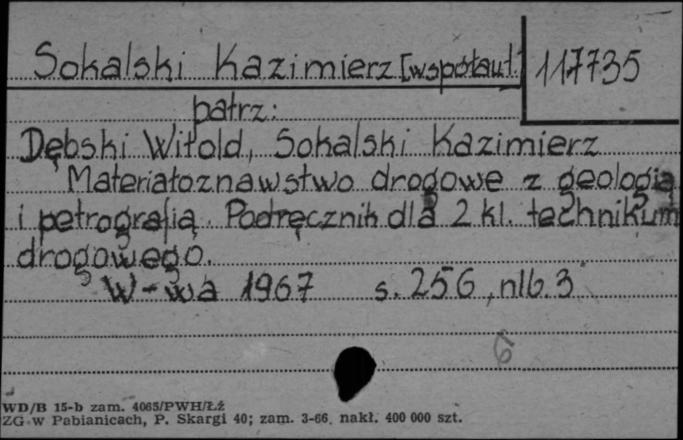 Sokalski Kazimierz [współaut.] 117735
patrz:
Dębski Witold, Sokalski Kazimierz
Materiałoznawstwo drogowe z geologią
i petrografią. Podręcznik dla 2 kl. technikum
drogowego.
W-wa 1967 s. 256, nlb. 3
WD/B 15-b zam. 4065/PWH/ŁŻ
ZG w Pabianicach, P. Skargi 40; zam. 3-66, nakł. 400 000 szt.